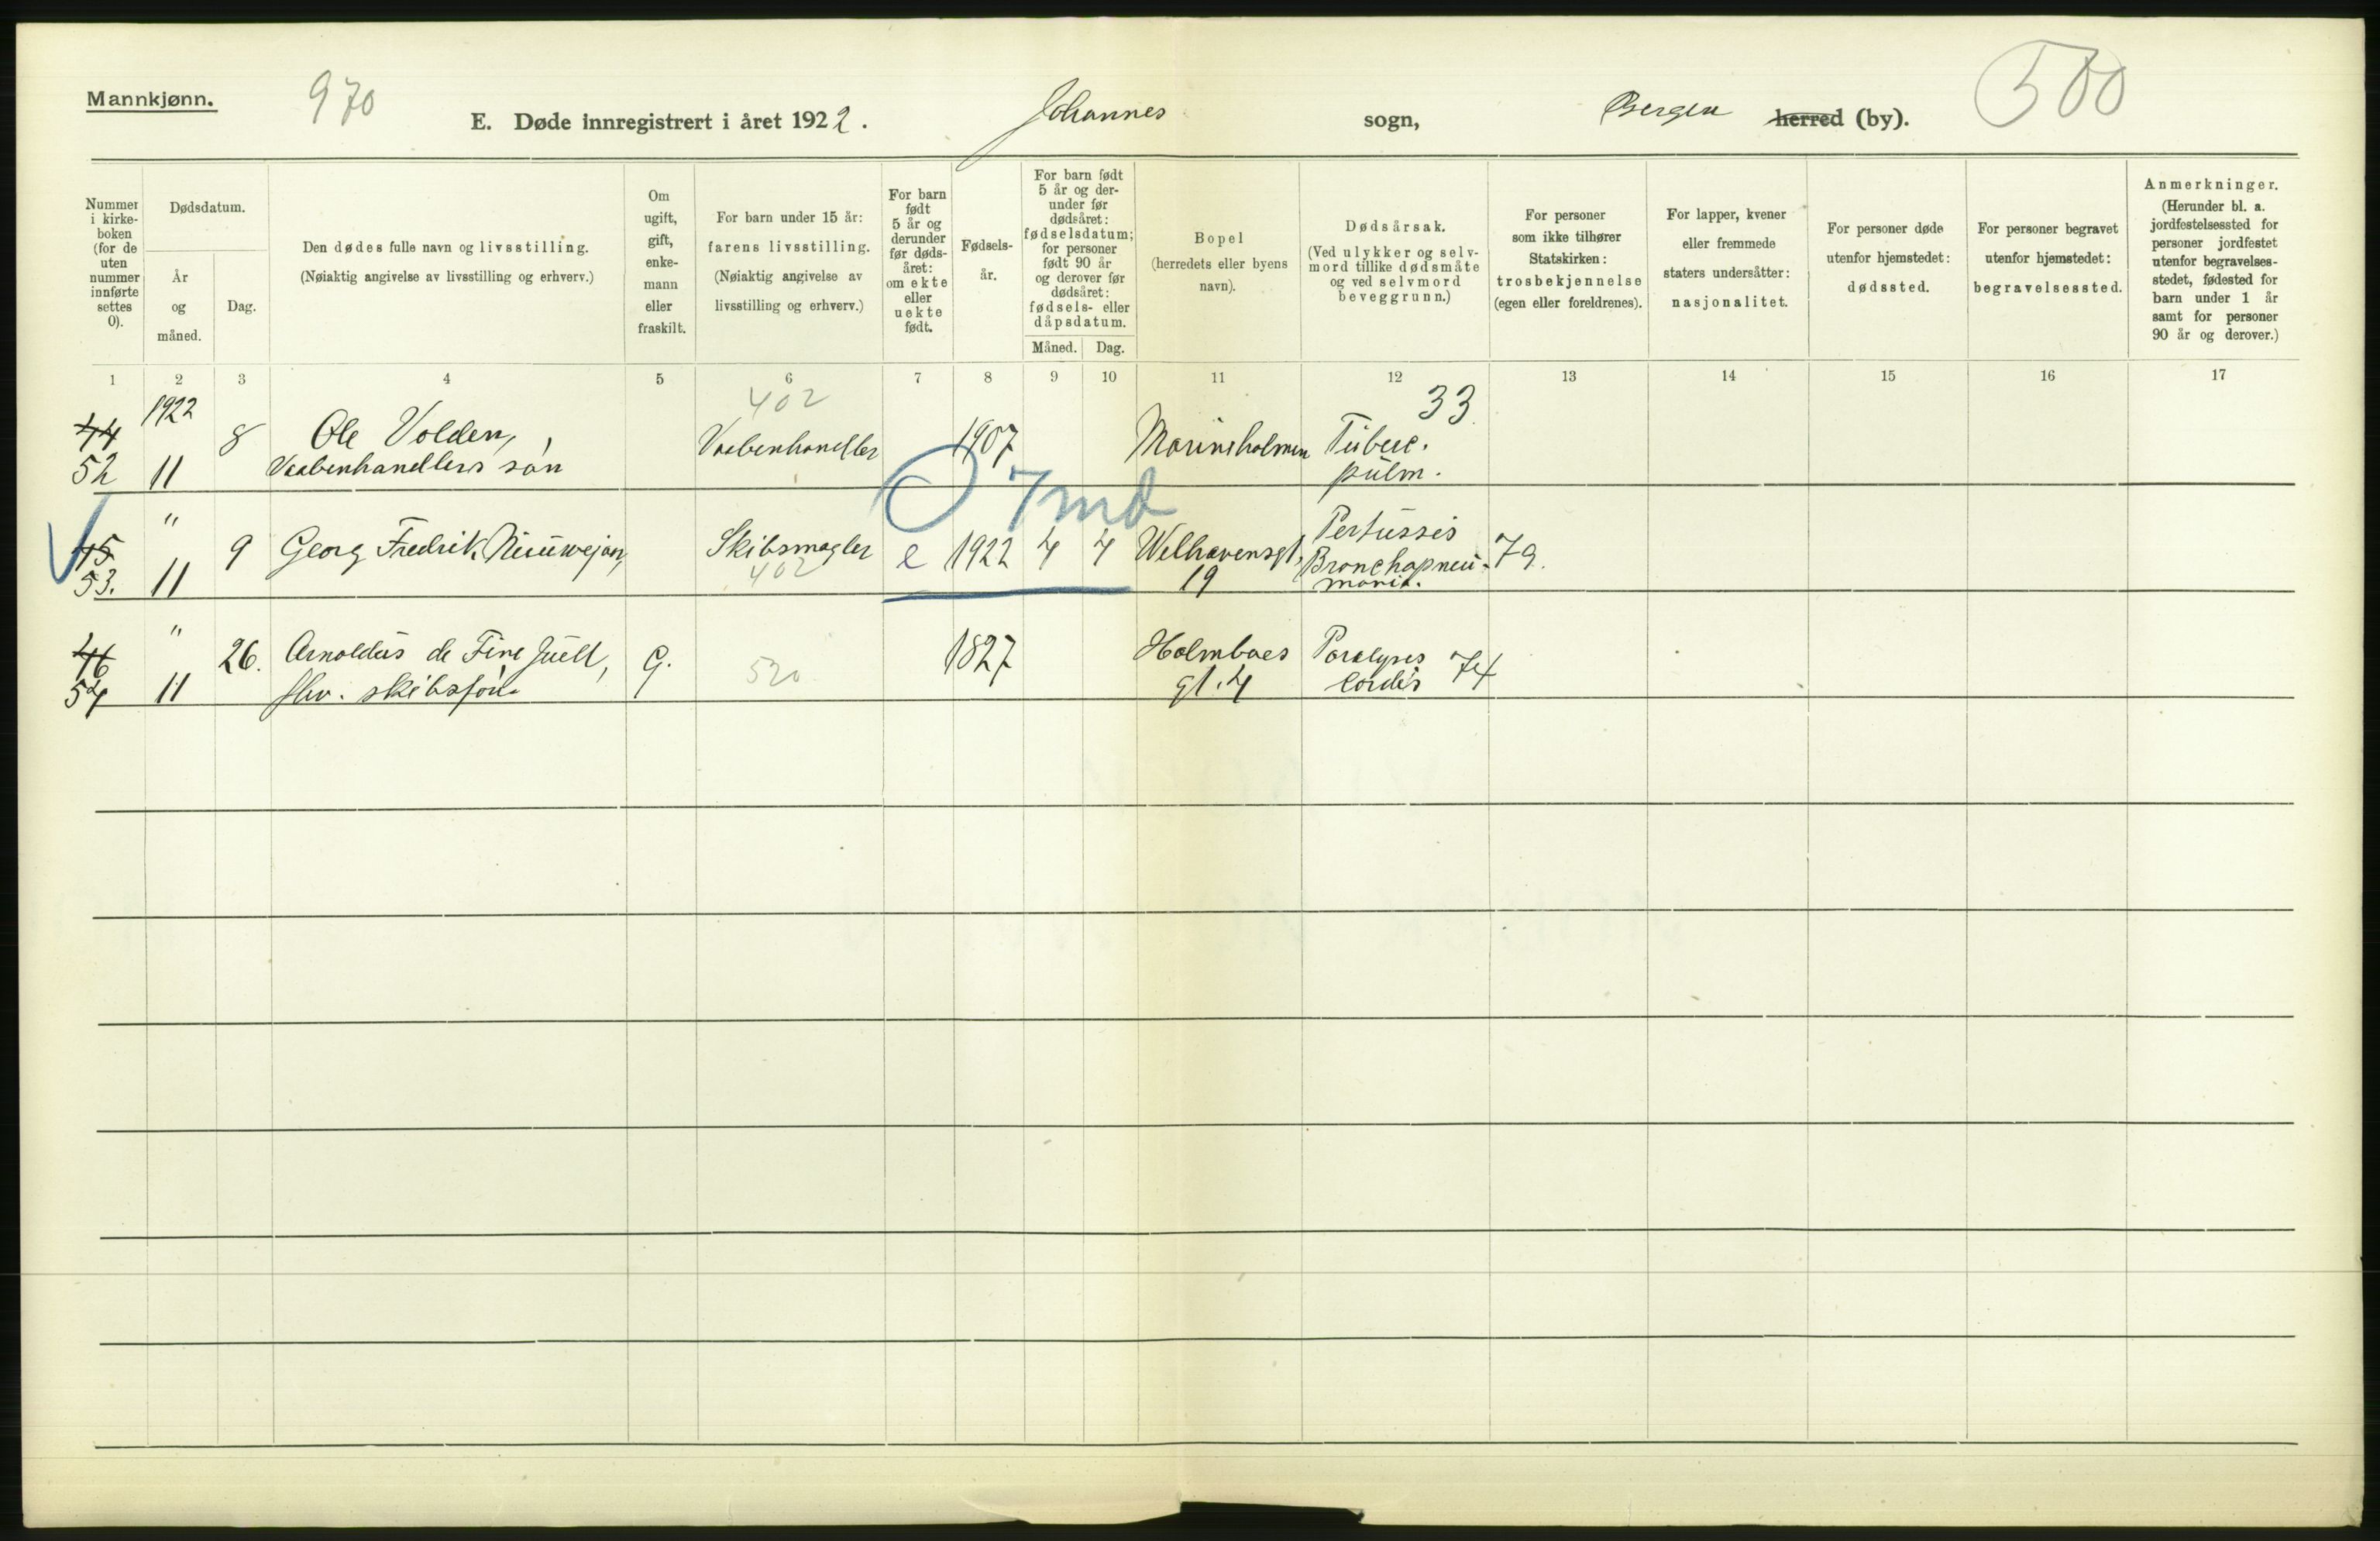 Mannkjønn.
970
E. Døde innregistrert i året 1922.
Johannes sogn,
Bergen herred (by).
500
Nummer i kirkeboken (for de uten nummer innførte settes 0).
Dødsdatum.
År og måned.
Dag.
Den dødes fulle navn og livsstilling.
(Nøiaktig angivelse av livsstilling og erhverv.)
Om ugift, gift, enkemann eller fraskilt.
For barn under 15 år: farens livsstilling.
(Nøiaktig angivelse av livsstilling og erhverv.)
For barn født 5 år og derunder før dødsåret: om ekte eller uekte født.
Fødselsår.
For barn født 5 år og derunder før dødsåret: fødselsdatum; for personer født 90 år og derover før dødsåret: fødsels- eller dåpsdatum.
Måned.
Dag.
Bopel
(herredets eller byens navn).
Dødsårsak.
(Ved ulykker og selvmord tillike dødsmåte og ved selvmord beveggrunn.)
For personer som ikke tilhører Statskirken: trosbekjennelse (egen eller foreldrenes).
For lapper, kvener eller fremmede staters undersåtter: nasjonalitet.
For personer døde utenfor hjemstedet: dødssted.
For personer begravet utenfor hjemstedet: begravelsessted.
Anmerkninger.
(Herunder bl. a. jordfestelsessted for personer jordfestet utenfor begravelsesstedet, fødested for barn under 1 år samt for personer 90 år og derover.)
1 2 3 4 5 6 7 8 9 10 11 12 13 14 15 16 17
1922 402 33
44 8 Ole Volden, Vaabenhandler 1907 Marineholmen Tuberc.
52 11 Vaabenhandlers søn pulm.
7 md
" Pertussis
45 9 Georg Fredrik Skibsmagler e 1922 4 4 Welhavensgt, Bronchopneu- 79.
53. 11 402 19 monia.
"
46 26. Arnoldus de Fine Juell, G. 520 1827 Holmboes Paralysis 74
54 11 fhv. skibsfør. gt. 4 cordis